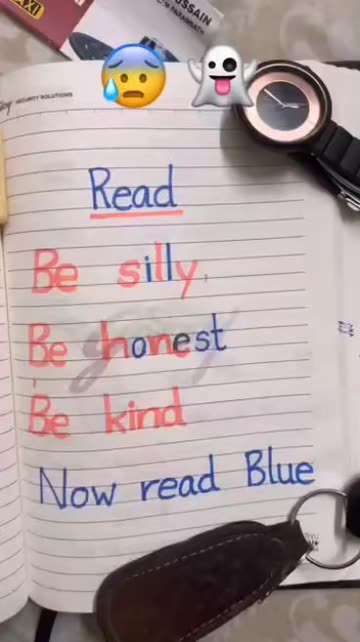 SSAIN
SECURITY SOLUTIONS
Read
Be silly
Be honest
Be kind
Now read Blue